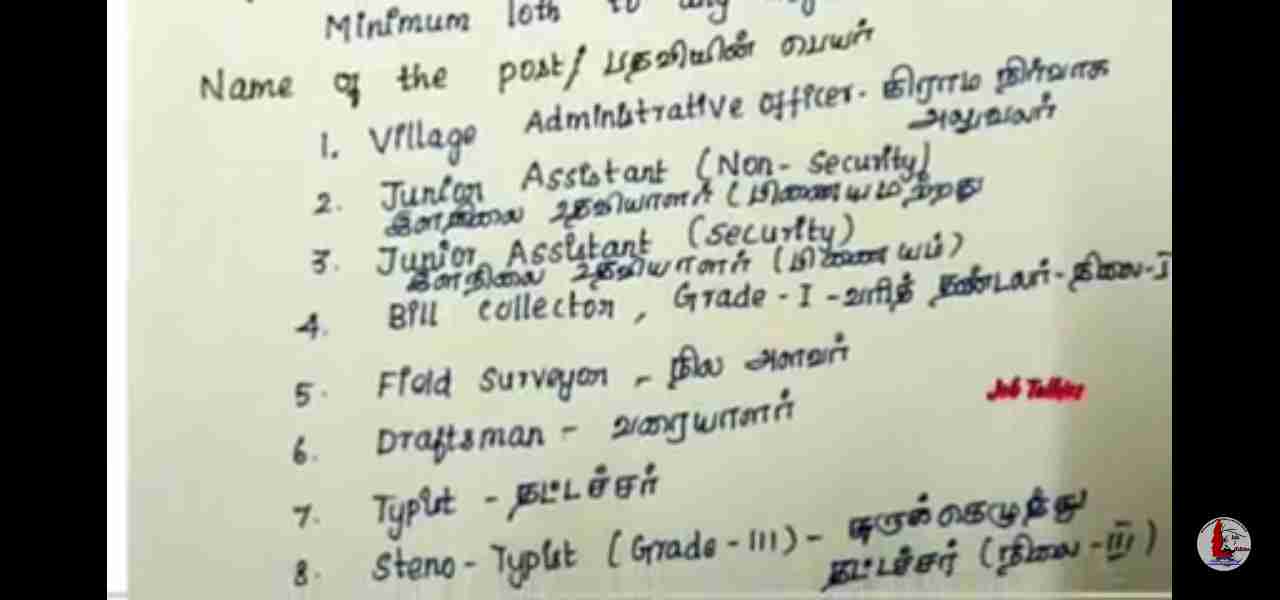 Minimum 10th to any
Name of the post/ பதவியின் பெயர்
1. Village Administrative Officer - கிராம நிர்வாக
அலுவலர்
2. Junior Assistant (Non - Security)
இளநிலை உதவியாளர் (பிணையமற்றது
3. Junior Assistant (Security)
இளநிலை உதவியாளர் (பிணையம்)
4. Bill Collector, Grade - I - வரித் தண்டலர் - நிலை - I
5. Field Surveyor - நில அளவர்
Job Talkies
6. Draftsman - வரையாளர்
7. Typist - தட்டச்சர்
8. Steno - Typist (Grade - III) - சுருக்கெழுத்து
தட்டச்சர் (நிலை - III)